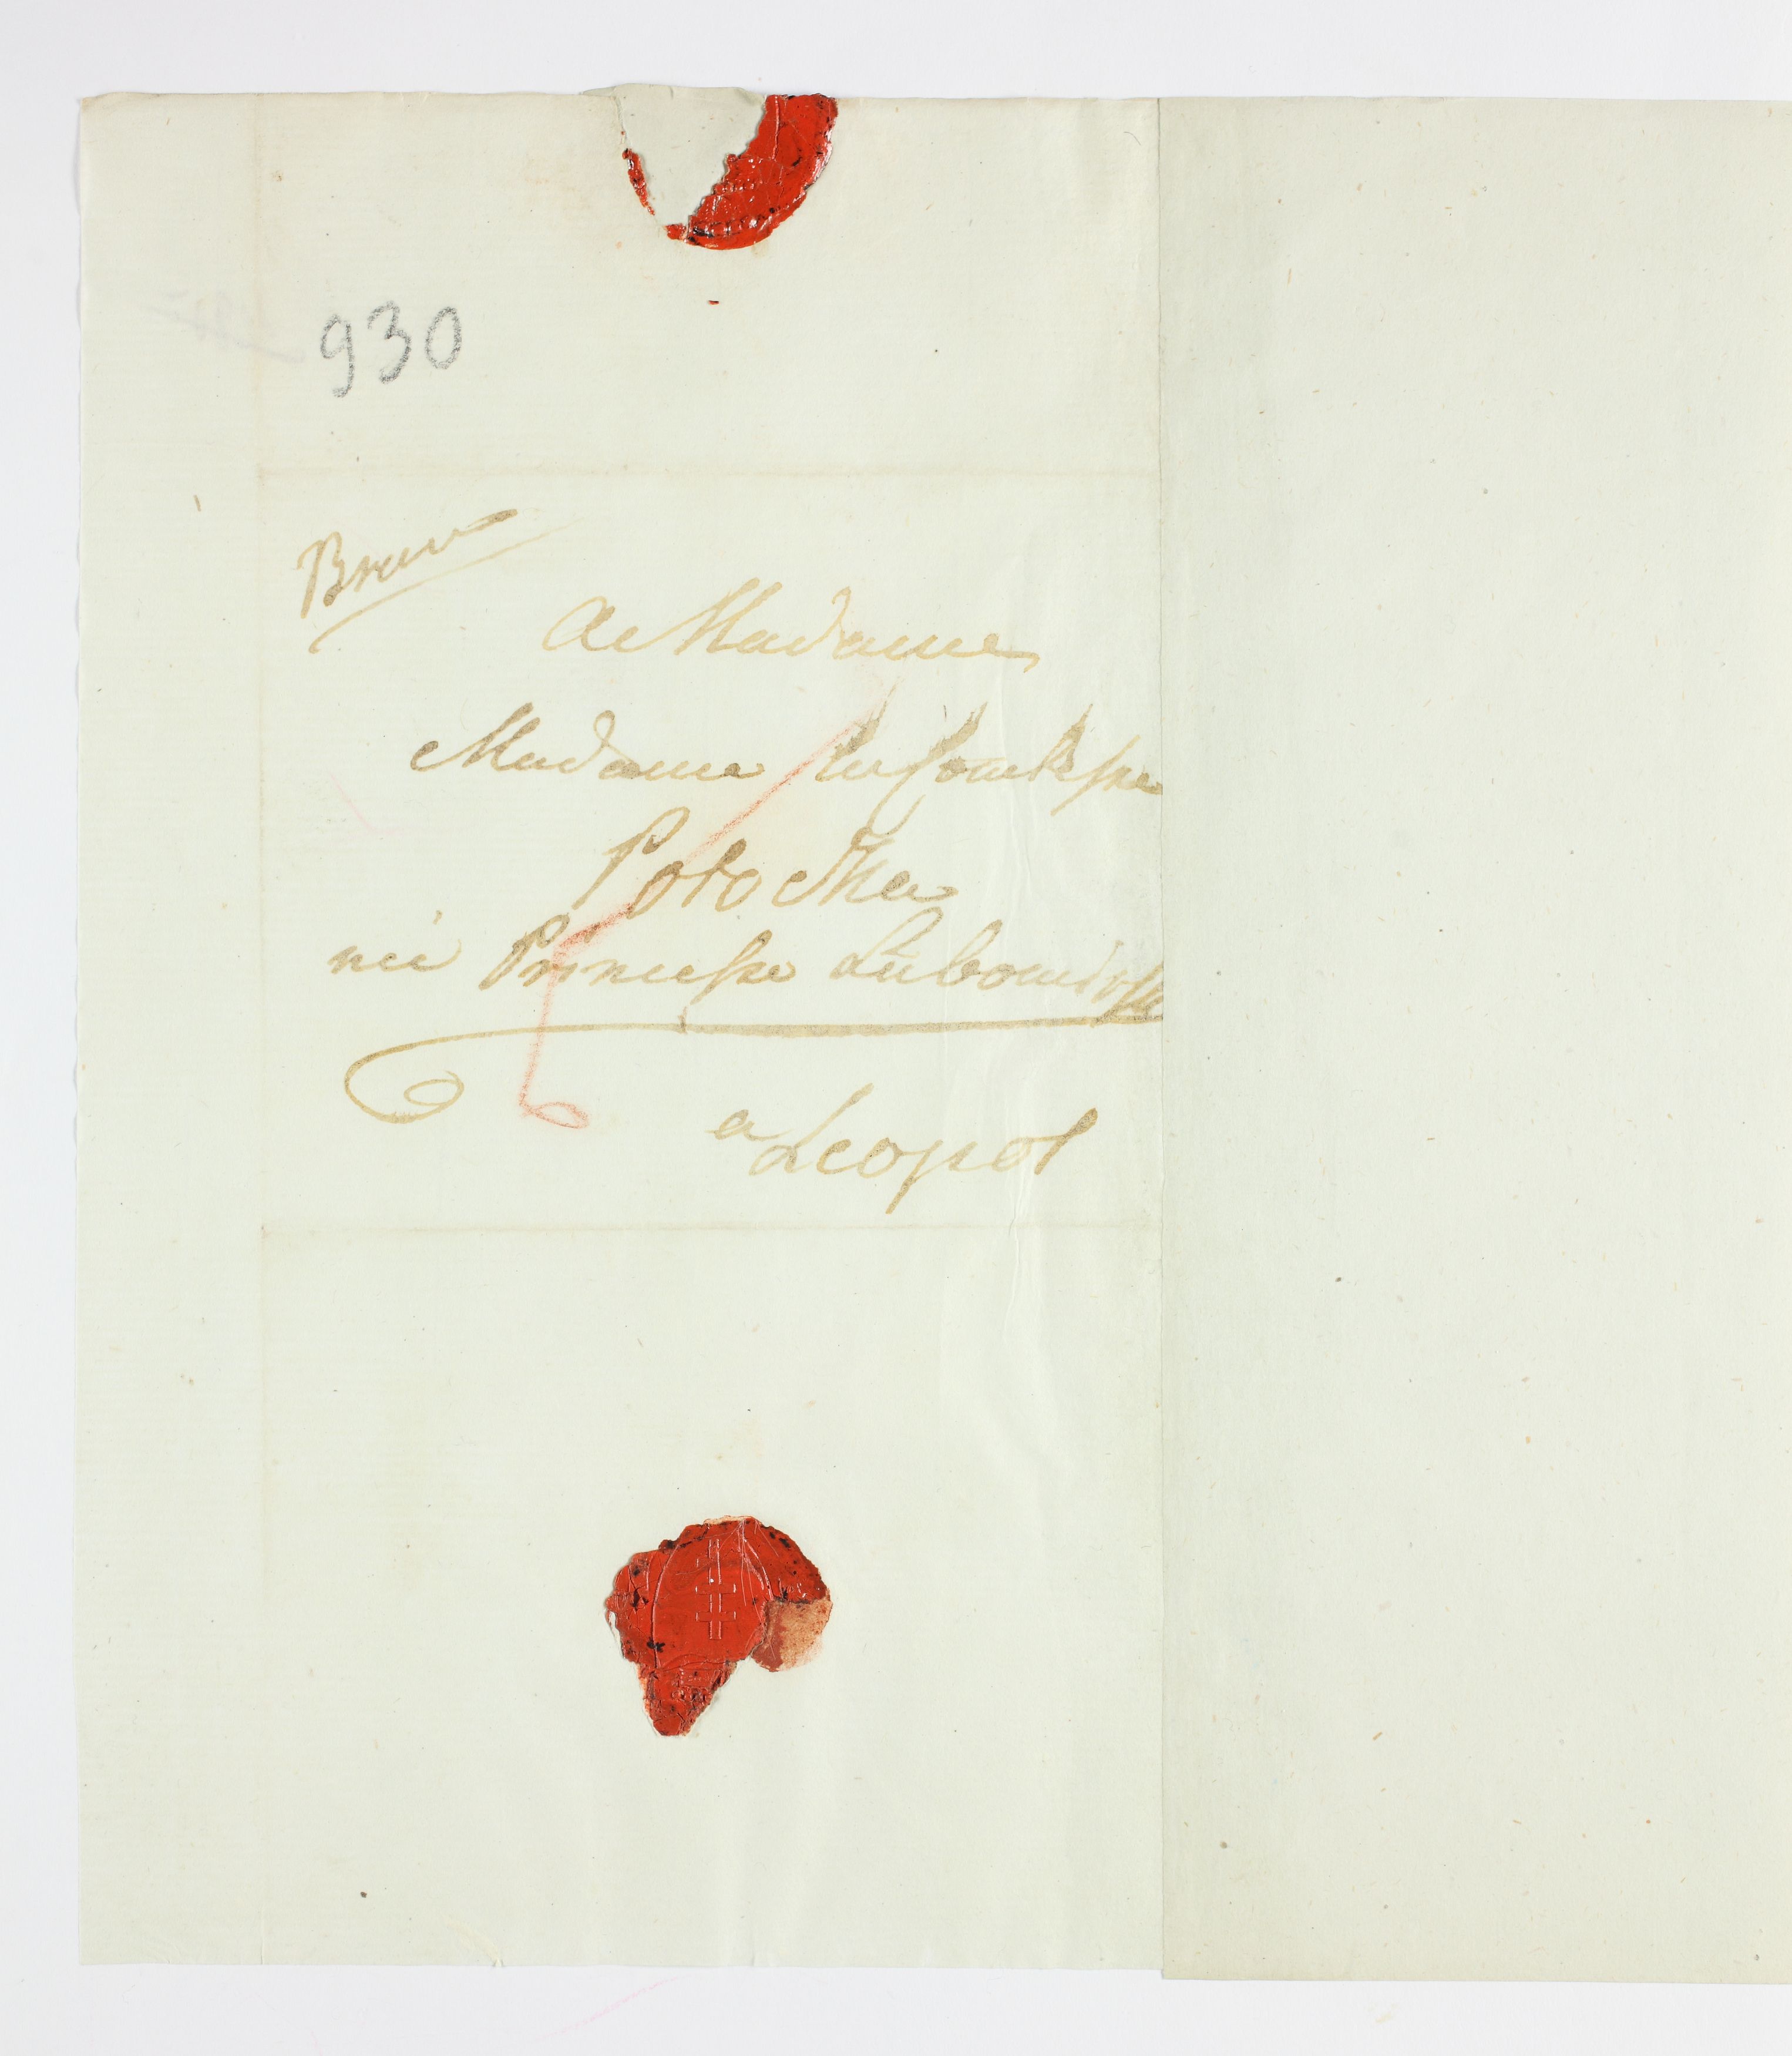 930
A Madame
Madame la Comtesse
Potocka
née Princesse Lubomirsk
a Leopol